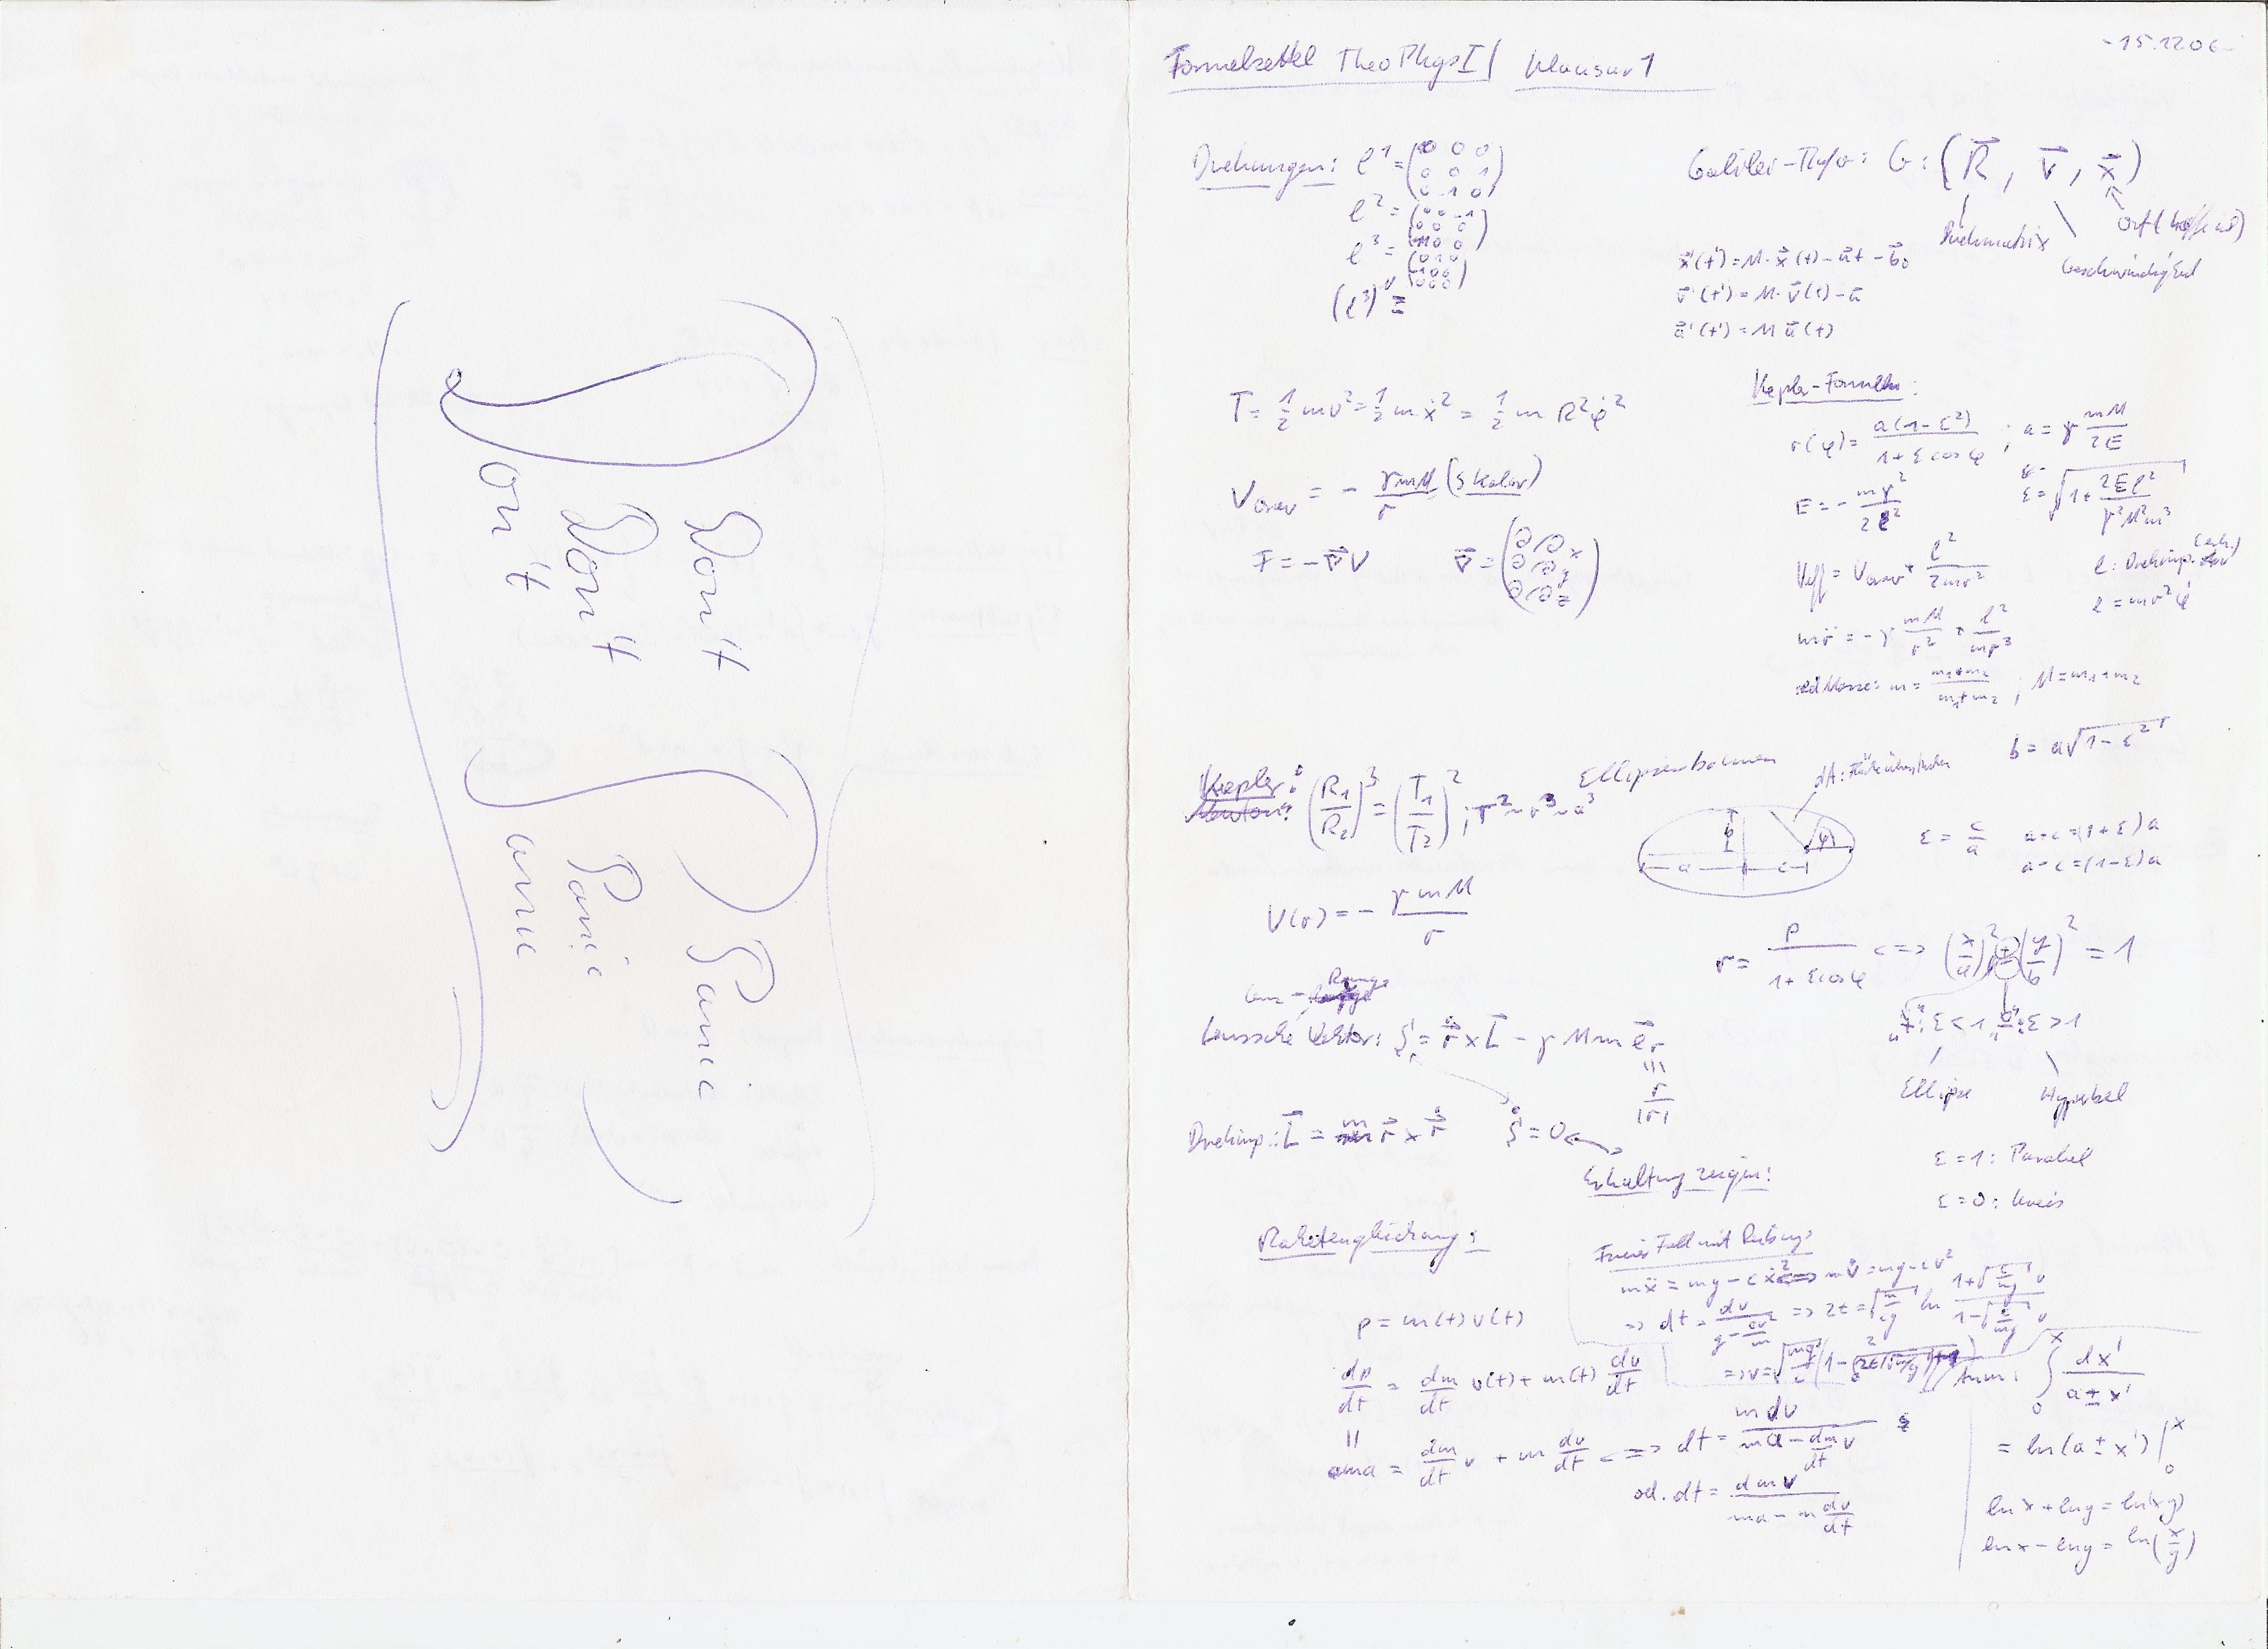 Don't Panic
Don't Panic
Don't Panic
-15.12.06-
Formelzettel TheoPhys I / Klausur 1
Drehungen: ℓ¹ = (0 0 0; 0 0 1; 0 -1 0)
ℓ² = (0 0 -1; 0 0 0; 1 0 0)
ℓ³ = (0 1 0; -1 0 0; 0 0 0)
(ℓ³)ᵛ =
Galilei-Trafo: G: (R⃗, v⃗, x⃗)
Drehmatrix
Geschwindigkeit
x⃗'(t') = M·x⃗(t) - a⃗t - b⃗₀
v⃗'(t') = M·v⃗(t) - a⃗
a⃗'(t') = M a⃗(t)
T = 1/2 mv² = 1/2 mẋ² = 1/2 m R²φ̇²
V_Grav = - γmM/r (Skalar)
F = -∇⃗V ∇⃗ = (∂/∂x; ∂/∂y; ∂/∂z)
Kepler-Formeln:
r(φ) = a(1-ε²)/(1+ε cos φ) ; a = γ mM/2E
E = - mγ²/2ℓ² ε = √(1 + 2Eℓ²/γ²M²m³)
V_eff = V_Grav + ℓ²/2mr² ℓ: Drehimp.
ℓ = mr²φ̇
mr̈ = -γ mM/r² + ℓ²/mr³
red Masse: m = m₁+m₂/m₁+m₂ ; M = m₁+m₂
Kepler: (R₁/R₂)³ = (T₁/T₂)² ; T² ~ r³ ~ a³
Newton:
Ellipsenbahnen
dA: Fläche überstrichen
b = a√(1-ε²)
b
φ
a
c
ε = c/a a-c = (1+ε)a
a-c = (1-ε)a
V(r) = - γmM/r
r = p/(1+ε cos φ) <=> (x/a)² ± (y/b)² = 1
"+": ε<1 "-": ε>1
Ellipse Hyperbel
ε=1: Parabel
ε=0: Kreis
Lenz - Runge
Lenzsche Vektor: ξ = r⃗̇ × L⃗ - γMm e⃗ᵣ
≡ r/|r|
Drehimp.: L⃗ = m r⃗ × r⃗̇ ξ̇ = 0
Erhaltung zeigen!
Raketengleichung:
p = m(t)v(t)
dp/dt = dm/dt v(t) + m(t) dv/dt
=
ma = dm/dt v + m dv/dt <=> dt = m dv/(ma - dm/dt v)
od. dt = dm v/(ma - m dv/dt)
Freier Fall mit Reibung:
mẍ = mg - cẋ² <=> mv̇ = mg - cv²
=> dt = dv/(g - cv²/m) => 2t = √(m/cg) ln (1+√(c/mg) v)/(1-√(c/mg) v)
=> v = √(mg/c) (1 -
Anm: ∫₀ˣ dx'/(a±x')
= ln(a±x')|₀ˣ
ln x + ln y = ln(xy)
ln x - ln y = ln(x/y)